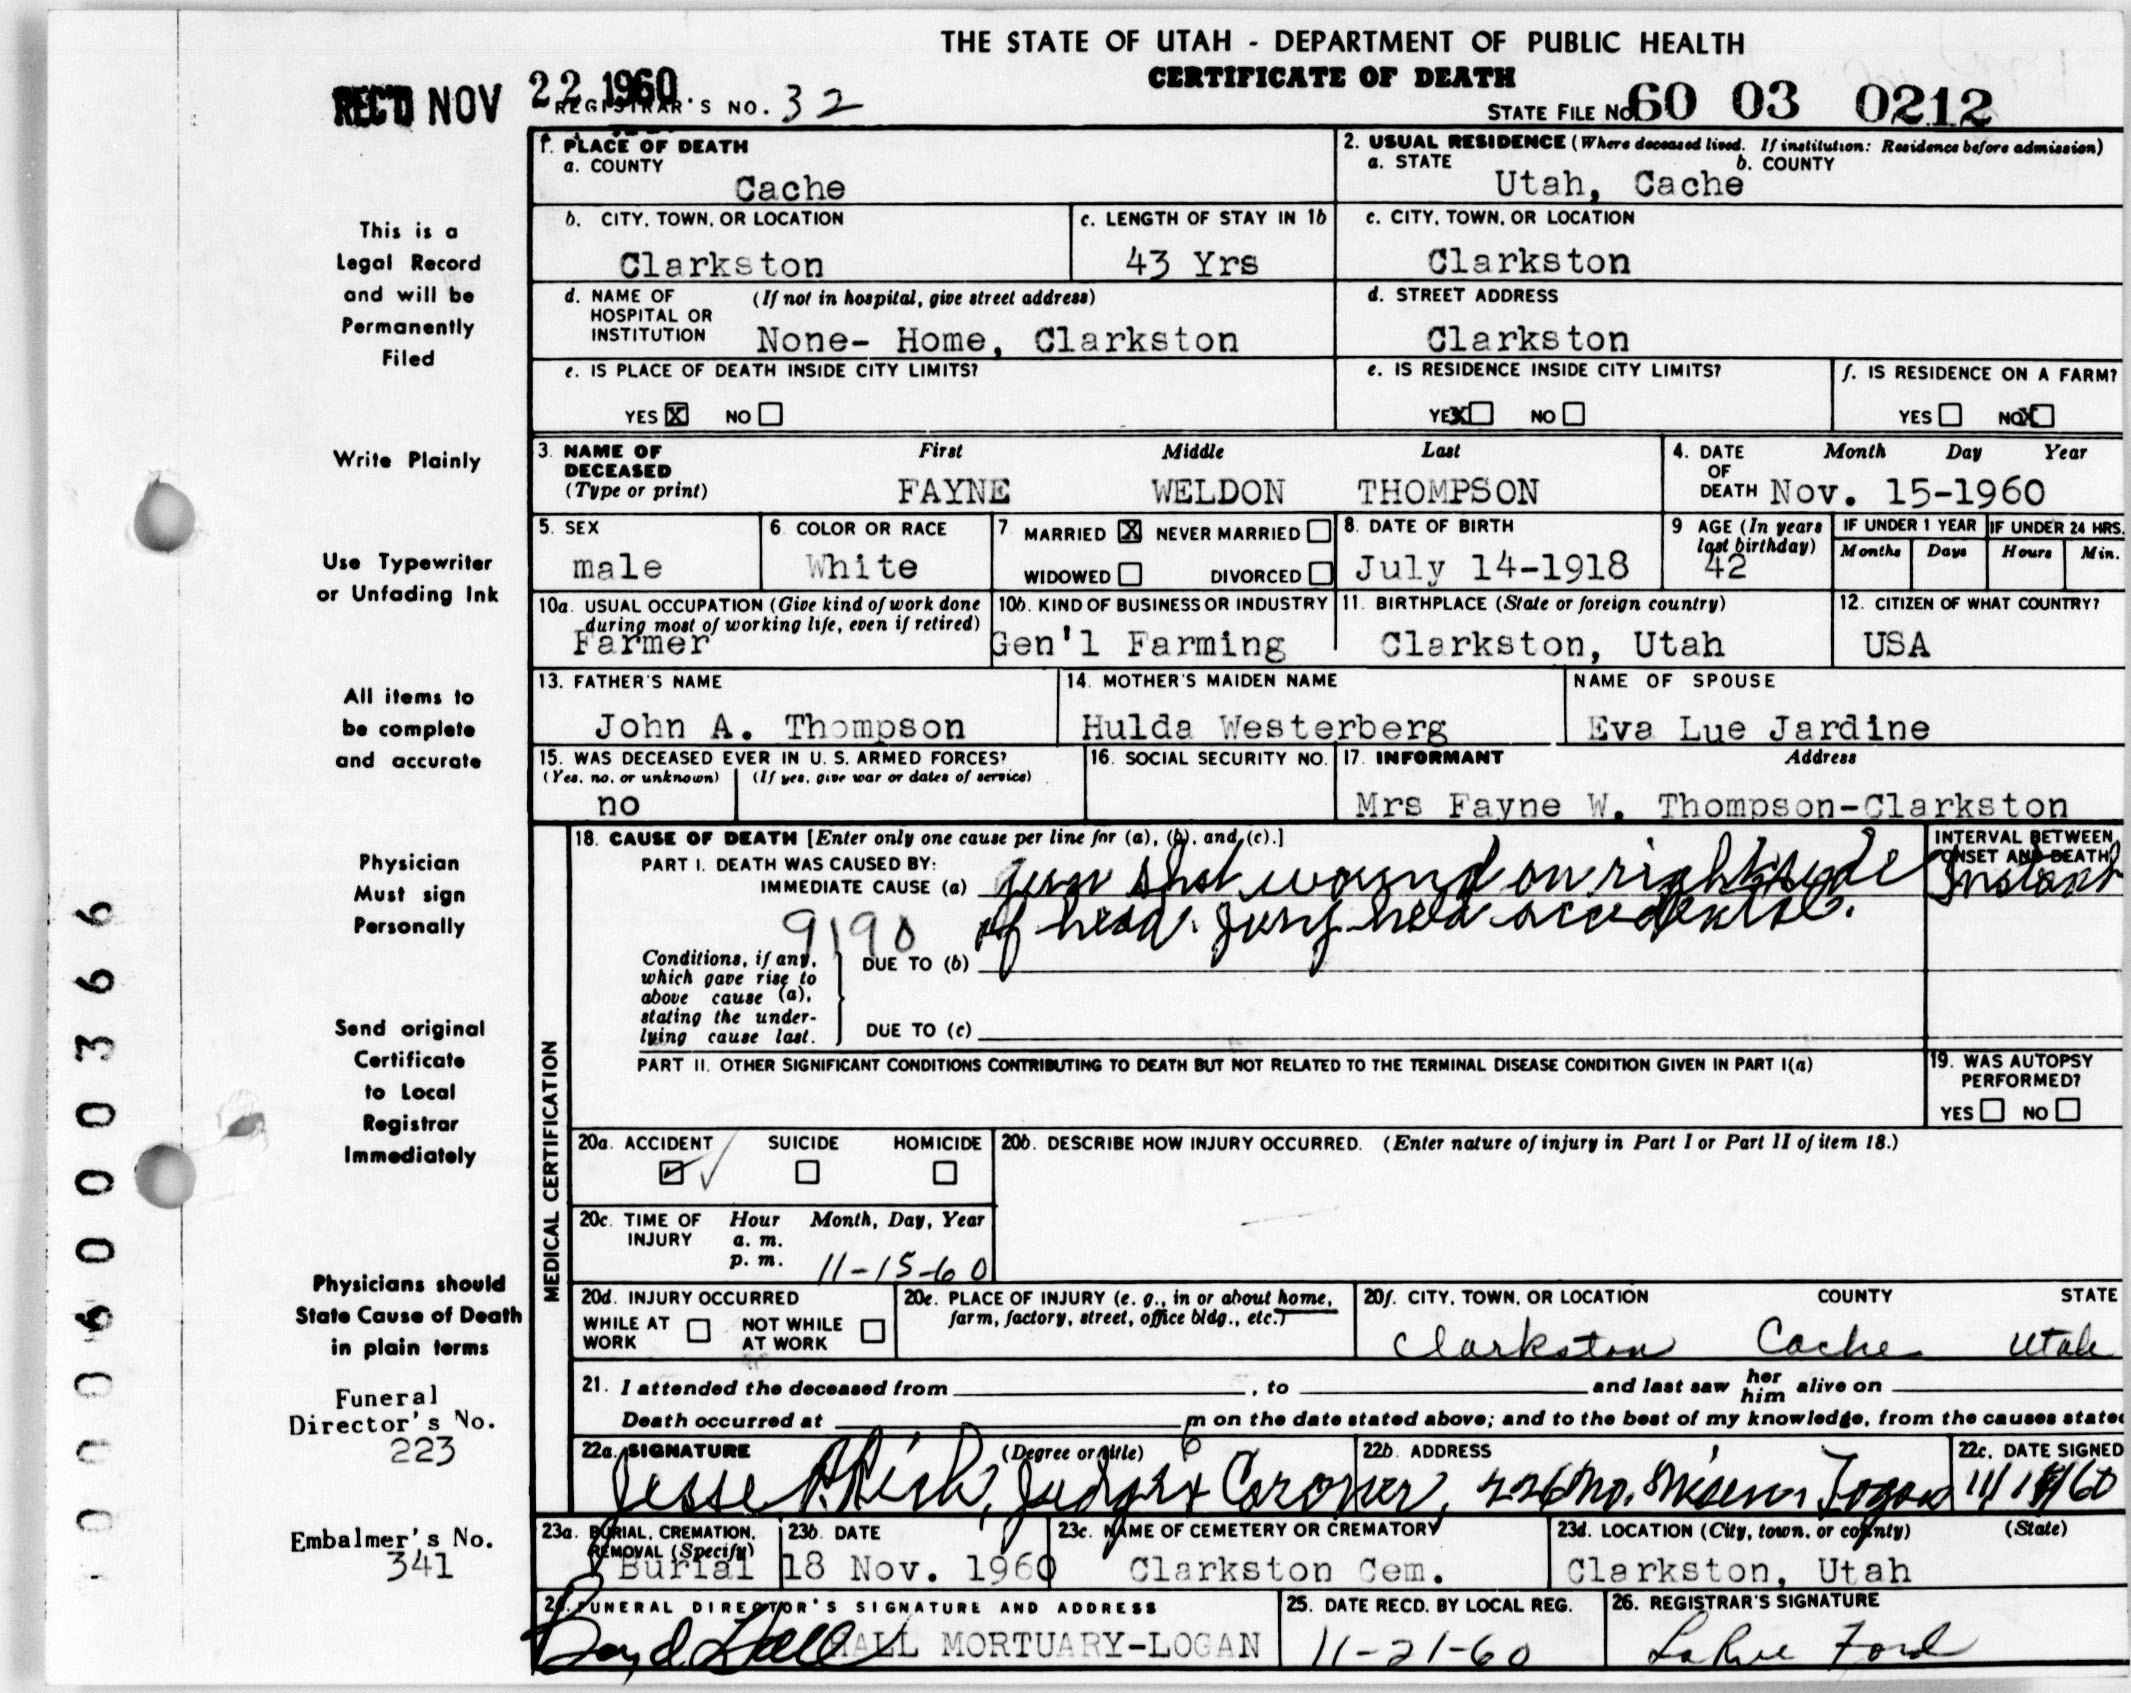 THE STATE OF UTAH - DEPARTMENT OF PUBLIC HEALTH
CERTIFICATE OF DEATH
REC'D NOV 22 1960
REGISTRAR'S NO. 32
STATE FILE No. 60 03 0212
This is a
Legal Record
and will be
Permanently
Filed
Write Plainly
Use Typewriter
or Unfading Ink
All items to
be complete
and accurate
Physician
Must sign
Personally
Send original
Certificate
to Local
Registrar
Immediately
Physicians should
State Cause of Death
in plain terms
Funeral
Director's No.
223
Embalmer's No.
341
1. PLACE OF DEATH
a. COUNTY
Cache
2. USUAL RESIDENCE (Where deceased lived. If institution: Residence before admission)
a. STATE b. COUNTY
Utah, Cache
b. CITY, TOWN, OR LOCATION
Clarkston
c. LENGTH OF STAY IN 1b
43 Yrs
c. CITY, TOWN, OR LOCATION
Clarkston
d. NAME OF (If not in hospital, give street address)
HOSPITAL OR
INSTITUTION None- Home, Clarkston
d. STREET ADDRESS
Clarkston
e. IS PLACE OF DEATH INSIDE CITY LIMITS?
YES X NO
e. IS RESIDENCE INSIDE CITY LIMITS?
YES X NO
f. IS RESIDENCE ON A FARM?
YES NO X
3. NAME OF DECEASED (Type or print)
First Middle Last
FAYNE WELDON THOMPSON
4. DATE OF DEATH
Month Day Year
Nov. 15-1960
5. SEX
male
6. COLOR OR RACE
White
7 MARRIED X NEVER MARRIED
WIDOWED DIVORCED
8. DATE OF BIRTH
July 14-1918
9 AGE (In years last birthday)
42
IF UNDER 1 YEAR IF UNDER 24 HRS.
Months Days Hours Min.
10a. USUAL OCCUPATION (Give kind of work done
during most of working life, even if retired)
Farmer
10b. KIND OF BUSINESS OR INDUSTRY
Gen'l Farming
11. BIRTHPLACE (State or foreign country)
Clarkston, Utah
12. CITIZEN OF WHAT COUNTRY?
USA
13. FATHER'S NAME
John A. Thompson
14. MOTHER'S MAIDEN NAME
Hulda Westerberg
NAME OF SPOUSE
Eva Lue Jardine
15. WAS DECEASED EVER IN U. S. ARMED FORCES?
(Yes, no, or unknown) (If yes, give war or dates of service)
no
16. SOCIAL SECURITY NO.
17. INFORMANT Address
Mrs Fayne W. Thompson-Clarkston
MEDICAL CERTIFICATION
18. CAUSE OF DEATH [Enter only one cause per line for (a), (b), and (c).]
PART I. DEATH WAS CAUSED BY:
IMMEDIATE CAUSE (a) gun shot wound on right side
of head. Jury held accidental.
INTERVAL BETWEEN
ONSET AND DEATH
Instant
9190
Conditions, if any,
which gave rise to
above cause (a),
stating the under-
lying cause last.
DUE TO (b)
DUE TO (c)
PART II. OTHER SIGNIFICANT CONDITIONS CONTRIBUTING TO DEATH BUT NOT RELATED TO THE TERMINAL DISEASE CONDITION GIVEN IN PART I(a)
19. WAS AUTOPSY
PERFORMED?
YES NO
20a. ACCIDENT SUICIDE HOMICIDE
20b. DESCRIBE HOW INJURY OCCURRED. (Enter nature of injury in Part I or Part II of item 18.)
20c. TIME OF INJURY
Hour Month, Day, Year
a. m.
p. m. 11-15-60
20d. INJURY OCCURRED
WHILE AT WORK NOT WHILE AT WORK
20e. PLACE OF INJURY (e. g., in or about home,
farm, factory, street, office bldg., etc.)
20f. CITY, TOWN, OR LOCATION COUNTY STATE
Clarkston Cache Utah
21. I attended the deceased from , to and last saw her him alive on
Death occurred at m on the date stated above; and to the best of my knowledge, from the causes stated
22a. SIGNATURE (Degree or title)
Jesse P. Rich, Judge & Coroner,
22b. ADDRESS
Logan
22c. DATE SIGNED
23a. BURIAL, CREMATION,
REMOVAL (Specify)
Burial
23b. DATE
18 Nov. 1960
23c. NAME OF CEMETERY OR CREMATORY
Clarkston Cem.
23d. LOCATION (City, town, or county) (State)
Clarkston, Utah
24. FUNERAL DIRECTOR'S SIGNATURE AND ADDRESS
Boyd Hall HALL MORTUARY-LOGAN
25. DATE RECD. BY LOCAL REG.
11-21-60
26. REGISTRAR'S SIGNATURE
LaRue Ford